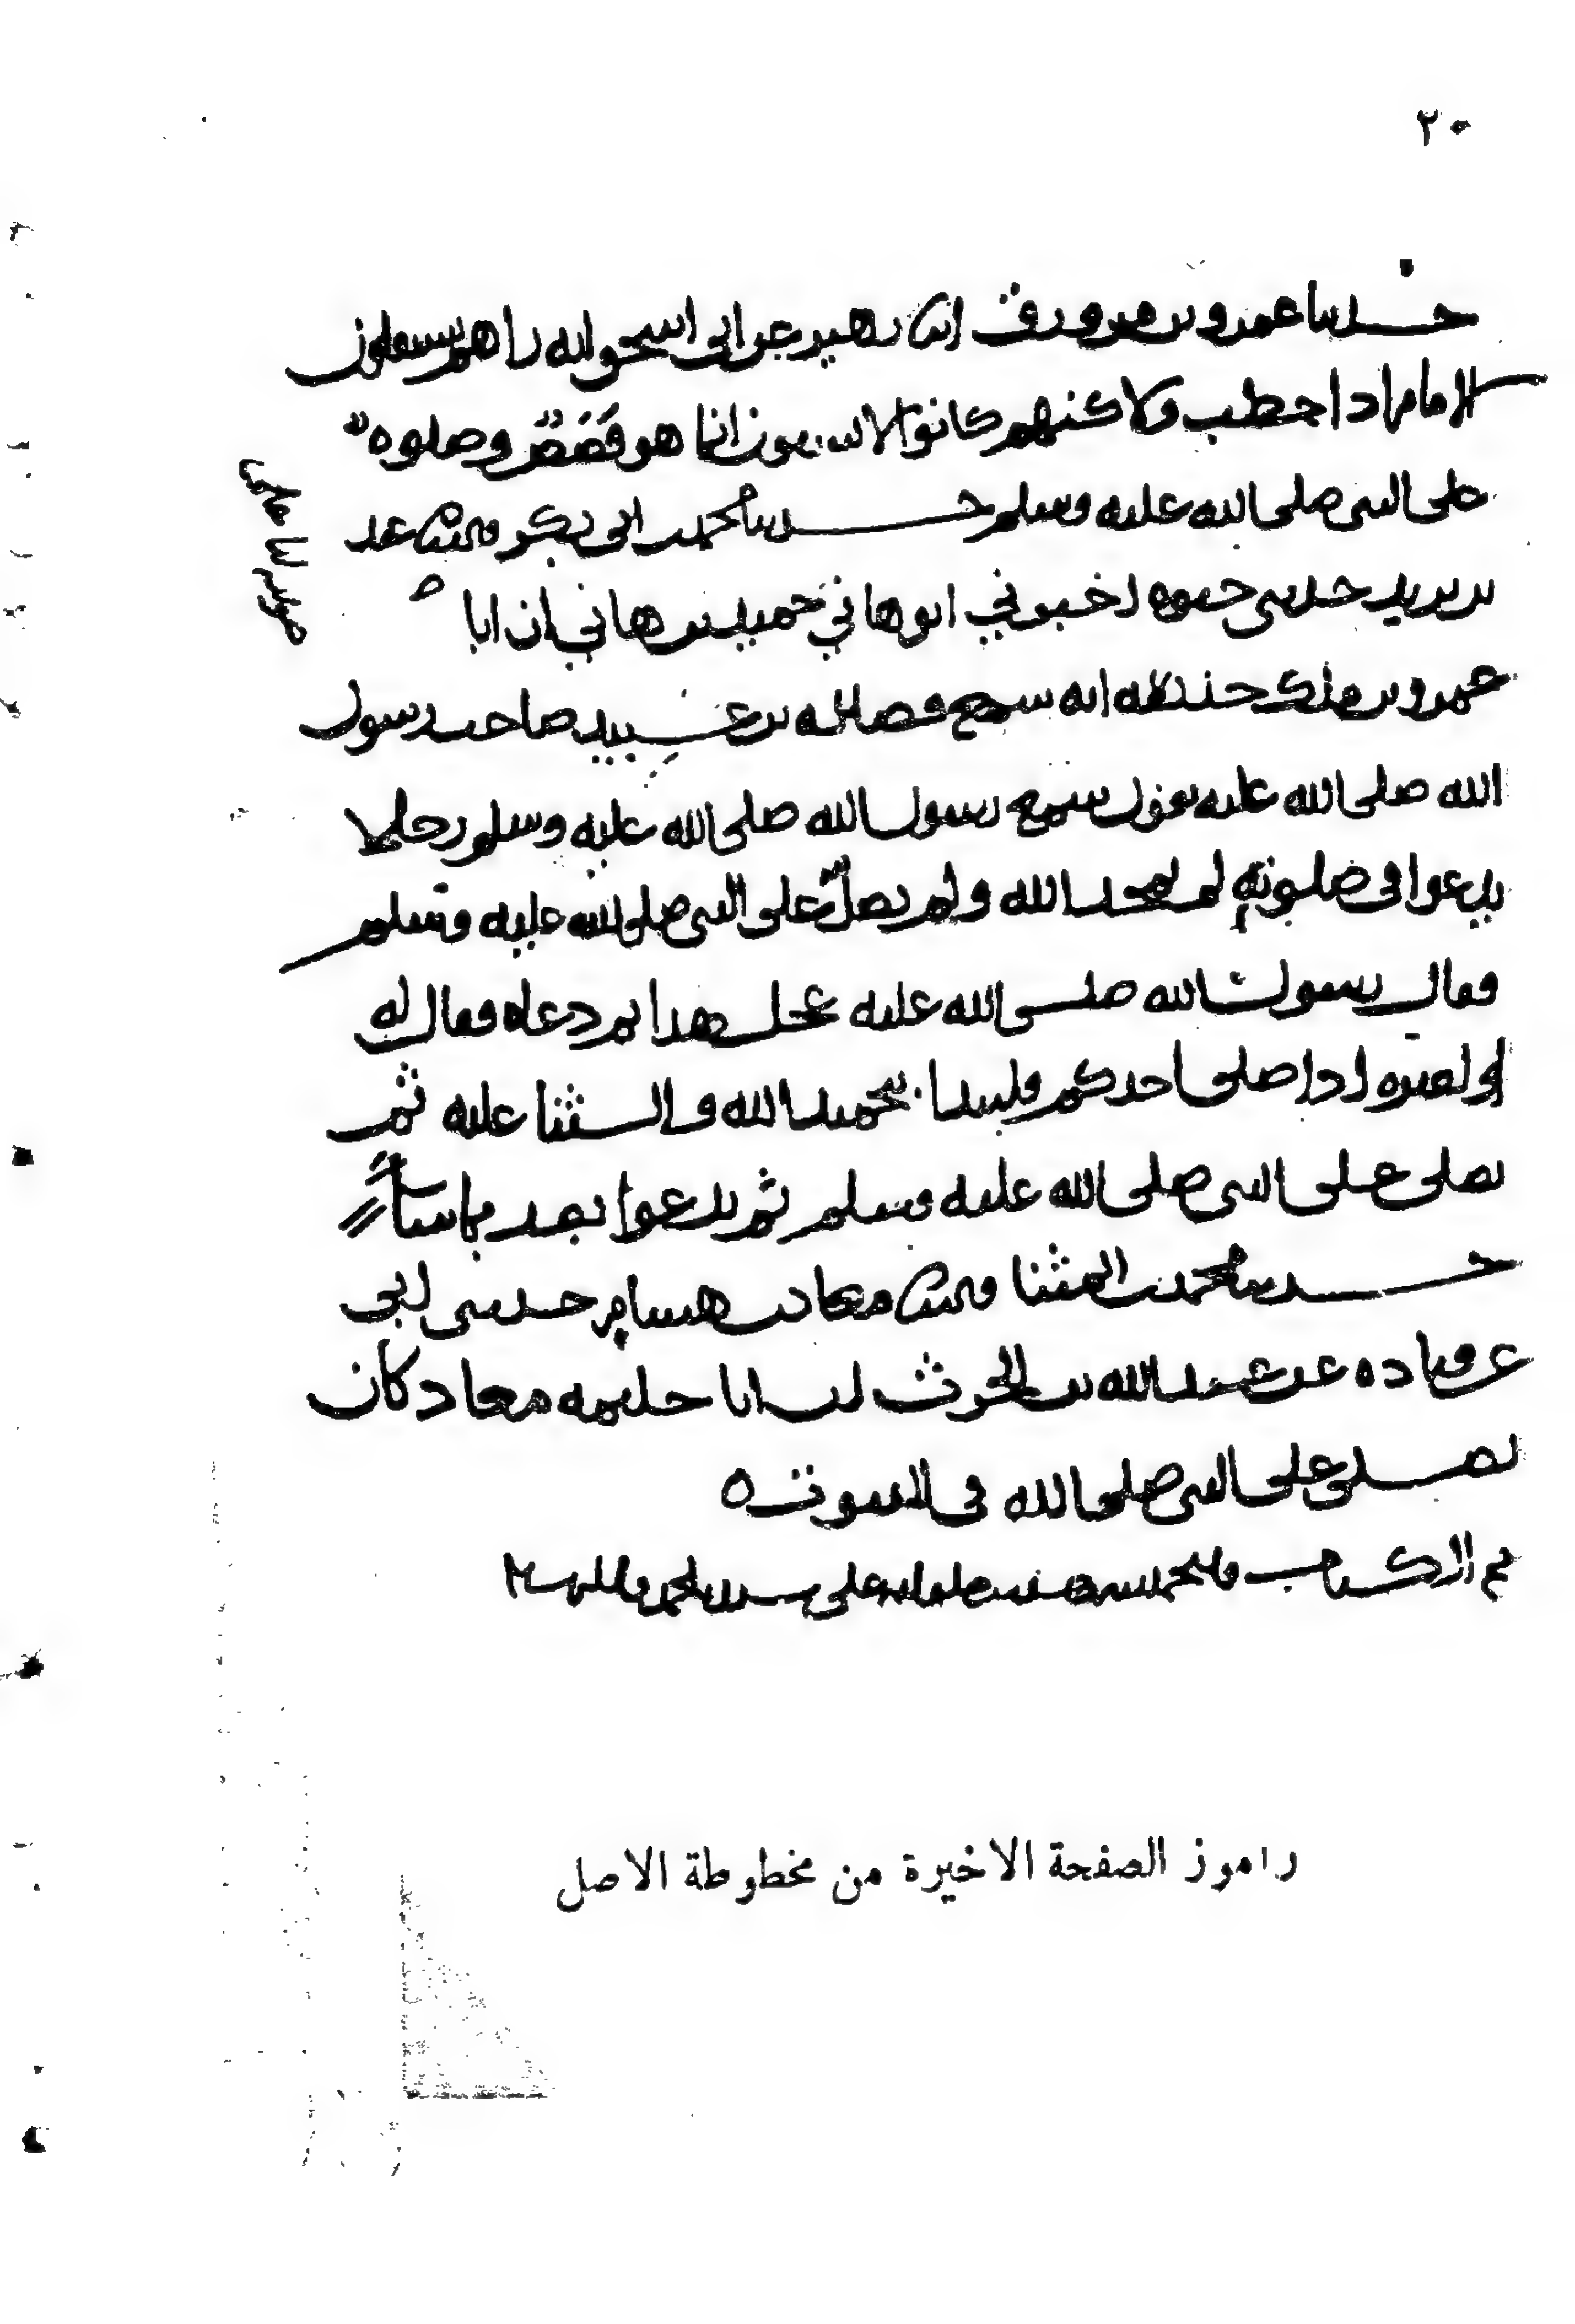 ٢٠
حدثنا عمرو بن مرزوق زهير عن ابي اسحق انه راهم يستقبلون
الامام اذا خطب ولاكنهم كانوا لا يسعون انما هو قصص وصلوه
على النبي صلى الله عليه وسلم حدثنا محمد بن ابي بكر عبد
بن يزيد حدثني حيوه اخبرني ابو هاني حميد بن هاني ان ابا
عمرو بن ملك حدثه انه سمع فضاله بن عبيد صاحب رسول
الله صلى الله عليه يقول سمع رسول الله صلى الله عليه وسلم رجلا
يدعوا في صلوته لم يحمد الله ولم يصل على النبي صلى الله عليه وسلم
فقال رسول الله صلى الله عليه عجل هذا ثم دعاه فقال له
او لغيره اذا صلى احدكم فليبدا بتحميد الله والثنا عليه ثم
يصلي على النبي صلى الله عليه وسلم ثم يدعوا بعد بما شا
حدثنا محمد بن المثنا معاذ بن هشام حدثني ابي
عن قتاده عن عبد الله بن الحرث ان ابا حليمه معاذ كان
يصلي على النبي صلى الله في القنوت ه
تم الكتاب والحمد لله على سيدنا محمد
راموز الصفحة الاخيرة من مخطوطة الاصل